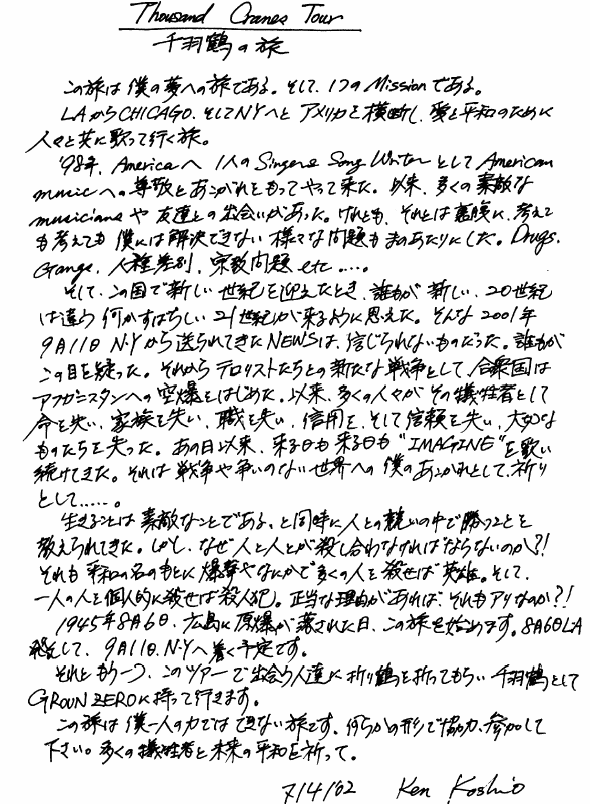 Thousand Cranes Tour
千羽鶴の旅
この旅は僕の夢への旅である。そして、1つのMissionである。
LAからCHICAGO、そしてNYへとアメリカを横断し、愛と平和のために
人々と共に歌って行く旅。
'98年、Americaへ1人のSinger & Song WriterとしてAmerican
musicへの尊敬とあこがれをもってやって来た。以来、多くの素敵な
musiciansや友達との出会いがあった。けれども、それとは裏腹に、考えて
も考えても僕には解決できない様々な問題もまのあたりにした。Drugs、
Gangs、人種差別、宗教問題 etc.....。
そして、この国で新しい世紀を迎えたとき、誰もが新しい、20世紀
とは違う何かすばらしい21世紀が来るように思えた。そんな2001年
9月11日 NYから送られてきたNEWSは、信じられないものだった。誰もが
この目を疑った。それからテロリストたちとの新たな戦争として、合衆国は
アフガニスタンへの空爆をはじめた。以来、多くの人々がその犠牲者として
命を失い、家族を失い、職を失い、信用を、そして信頼を失い、大切な
ものたちを失った。あの日以来、来る日も来る日も"IMAGINE"を歌い
続けてきた。それは戦争や争いのない世界への僕のあこがれとして、祈り
として......。
生きることは素敵なことである、と同時に人との競いの中で勝つことを
教えられてきた。しかし、なぜ人と人とが殺し合わなければならないのか?!
それも平和の名のもとに爆撃やなにかで多くの人を殺せば英雄。そして、
一人の人を個人的に殺せば殺人犯。正当な理由があれば、それもアリなのか?!
1945年8月6日、広島に原爆が落された日、この旅を始めます。8月6日LA
発して、9月11日、N.Yへ着く予定です。
それともう一つ、このツアーで出会う人達に折り鶴を折ってもらい千羽鶴として
GROUN ZEROに持って行きます。
この旅は僕一人の力ではできない旅です、何らかの形で協力、参加して
下さい。多くの犠牲者と未来の平和を祈って。
7/4/'02 Ken Koshio